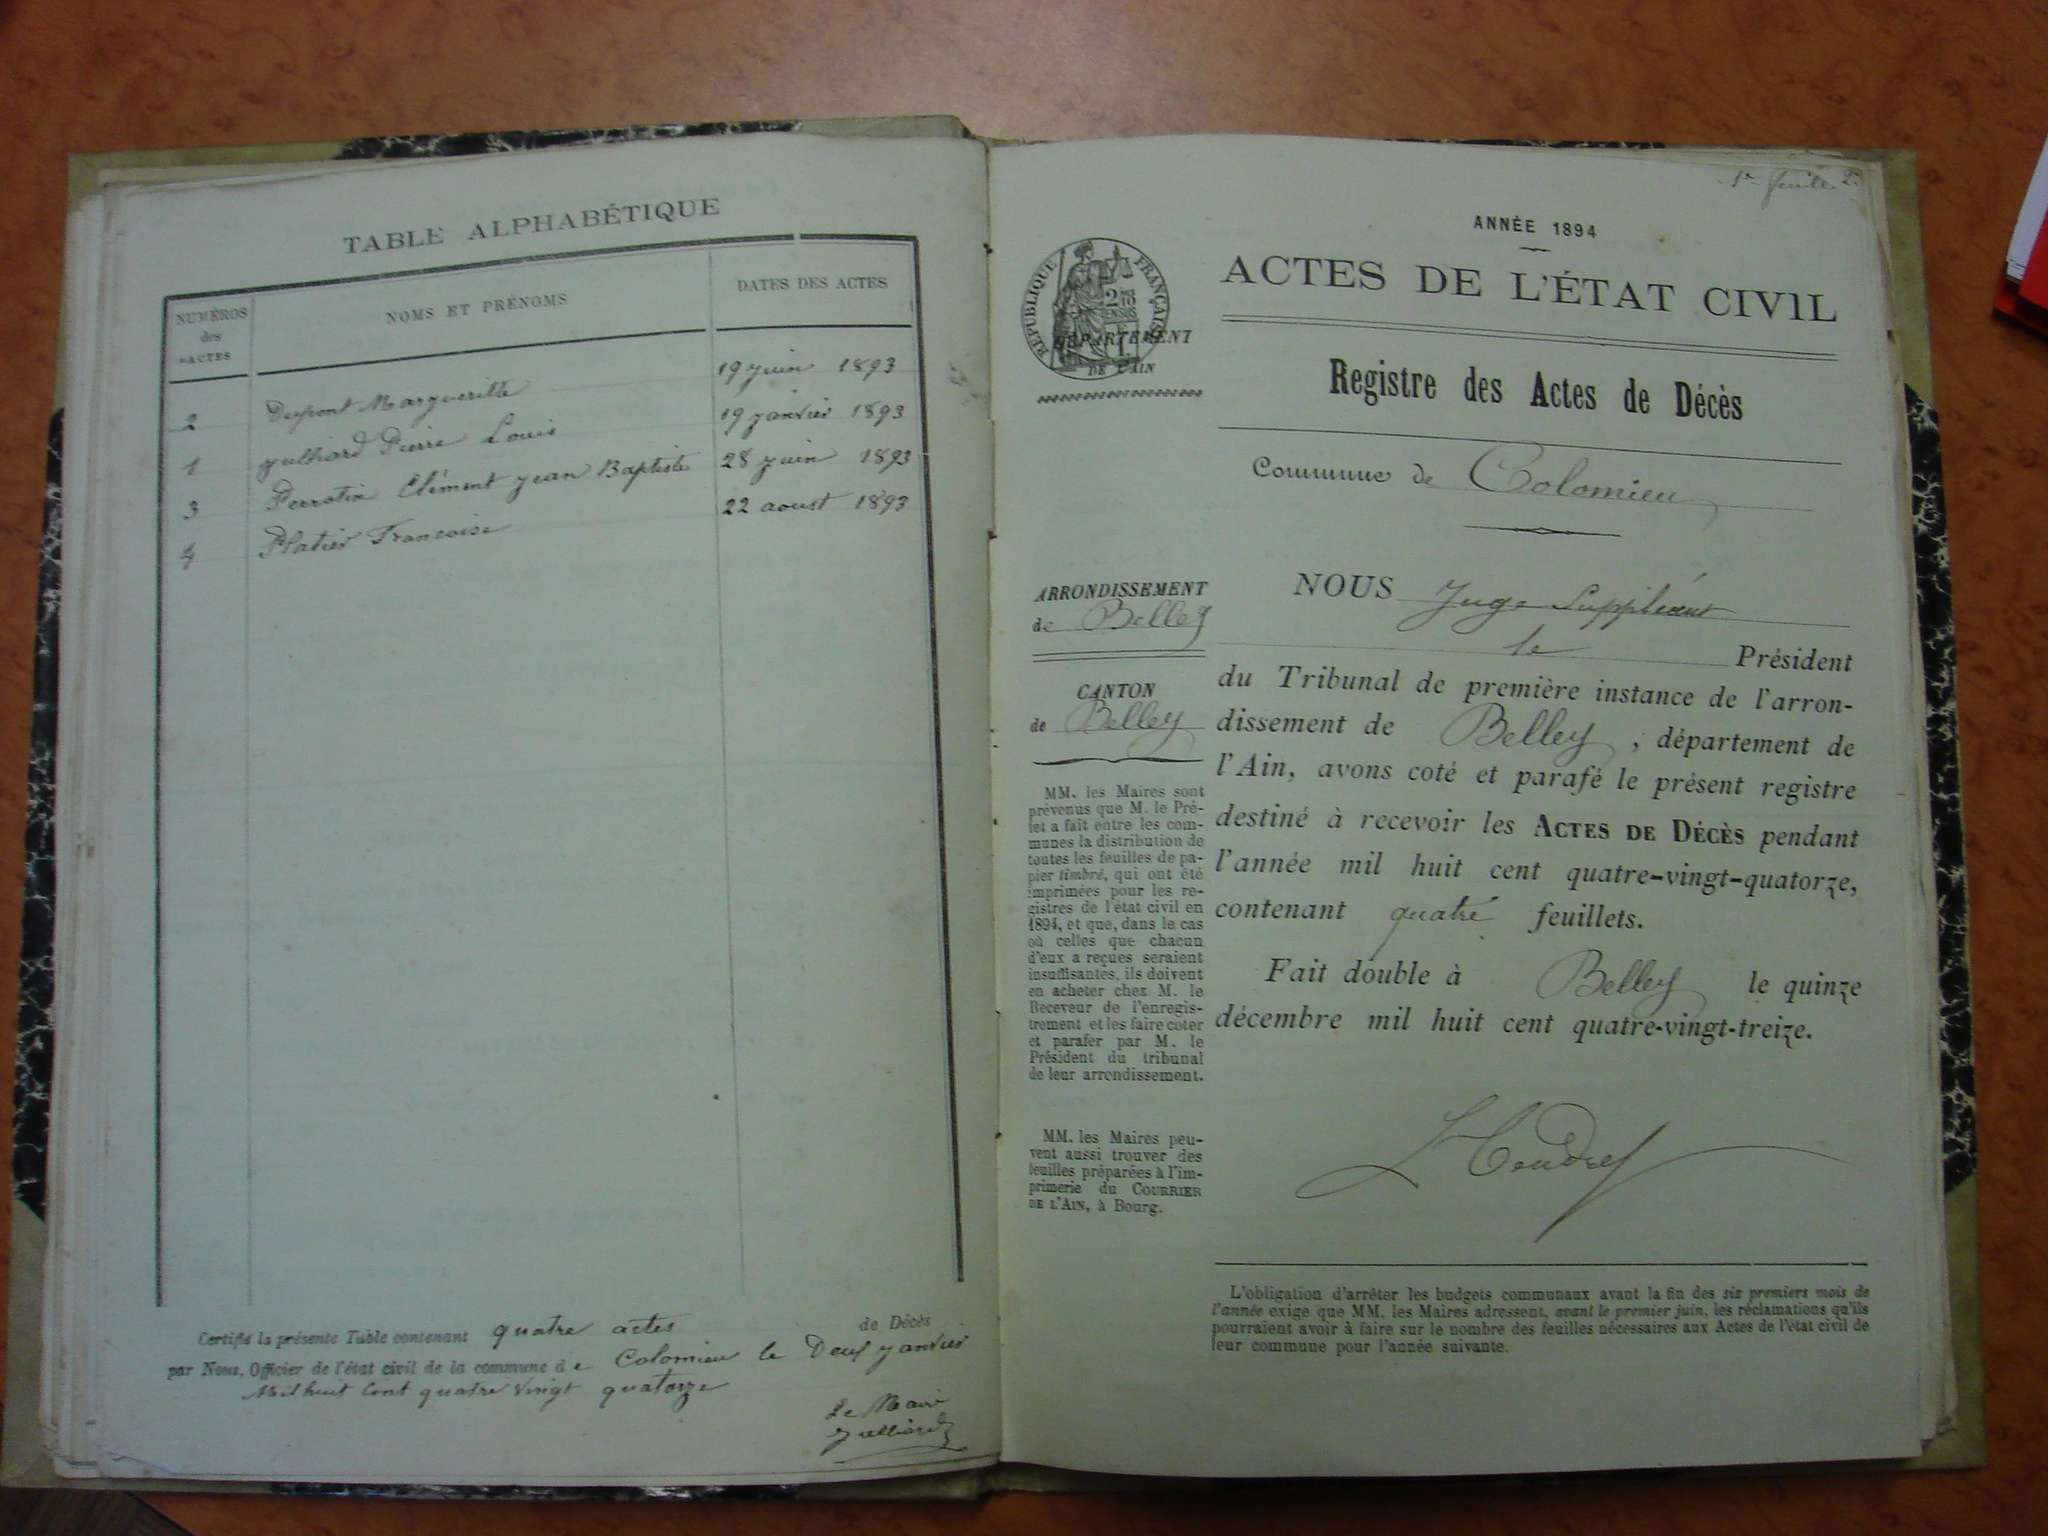 TABLE ALPHABÉTIQUE
NUMÉROS
des
ACTES
NOMS ET PRÉNOMS
DATES DES ACTES
2 Dupont Margueritte 19 juin 1893
1 Julliard Pierre Louis 19 janvier 1893
3 Perrotin Clément Jean Baptiste 28 juin 1893
4 Platier Francoise 22 aoust 1893
Certifié la présente Table contenant quatre actes de Décès
par Nous, Officier de l'état civil de la commune de Colomieu le Deux janvier
Mil huit Cent quatre vingt quatorze
Le Maire
Julliard
ANNÉE 1894
ACTES DE L'ÉTAT CIVIL
RÉPUBLIQUE FRANÇAISE
DÉPARTEMENT
DE L'AIN
Registre des Actes de Décès
Commune de Colomieu
ARRONDISSEMENT
de Belley
CANTON
de Belley
MM. les Maires sont
prévenus que M. le Pré-
fet a fait entre les com-
munes la distribution de
toutes les feuilles de pa-
pier timbré, qui ont été
imprimées pour les re-
gistres de l'état civil en
1894, et que, dans le cas
où celles que chacun
d'eux a reçues seraient
insuffisantes, ils doivent
en acheter chez M. le
Receveur de l'enregis-
trement et les faire coter
et parafer par M. le
Président du tribunal
de leur arrondissement.
MM. les Maires peu-
vent aussi trouver des
feuilles préparées à l'im-
primerie du COURRIER
DE L'AIN, à Bourg.
NOUS Juge Suppléant
le Président
du Tribunal de première instance de l'arron-
dissement de Belley, département de
l'Ain, avons coté et parafé le présent registre
destiné à recevoir les ACTES DE DÉCÈS pendant
l'année mil huit cent quatre-vingt-quatorze,
contenant quatre feuillets.
Fait double à Belley le quinze
décembre mil huit cent quatre-vingt-treize.
L'obligation d'arrêter les budgets communaux avant la fin des six premiers mois de
l'année exige que MM. les Maires adressent, avant le premier juin, les réclamations qu'ils
pourraient avoir à faire sur le nombre des feuilles nécessaires aux Actes de l'état civil de
leur commune pour l'année suivante.